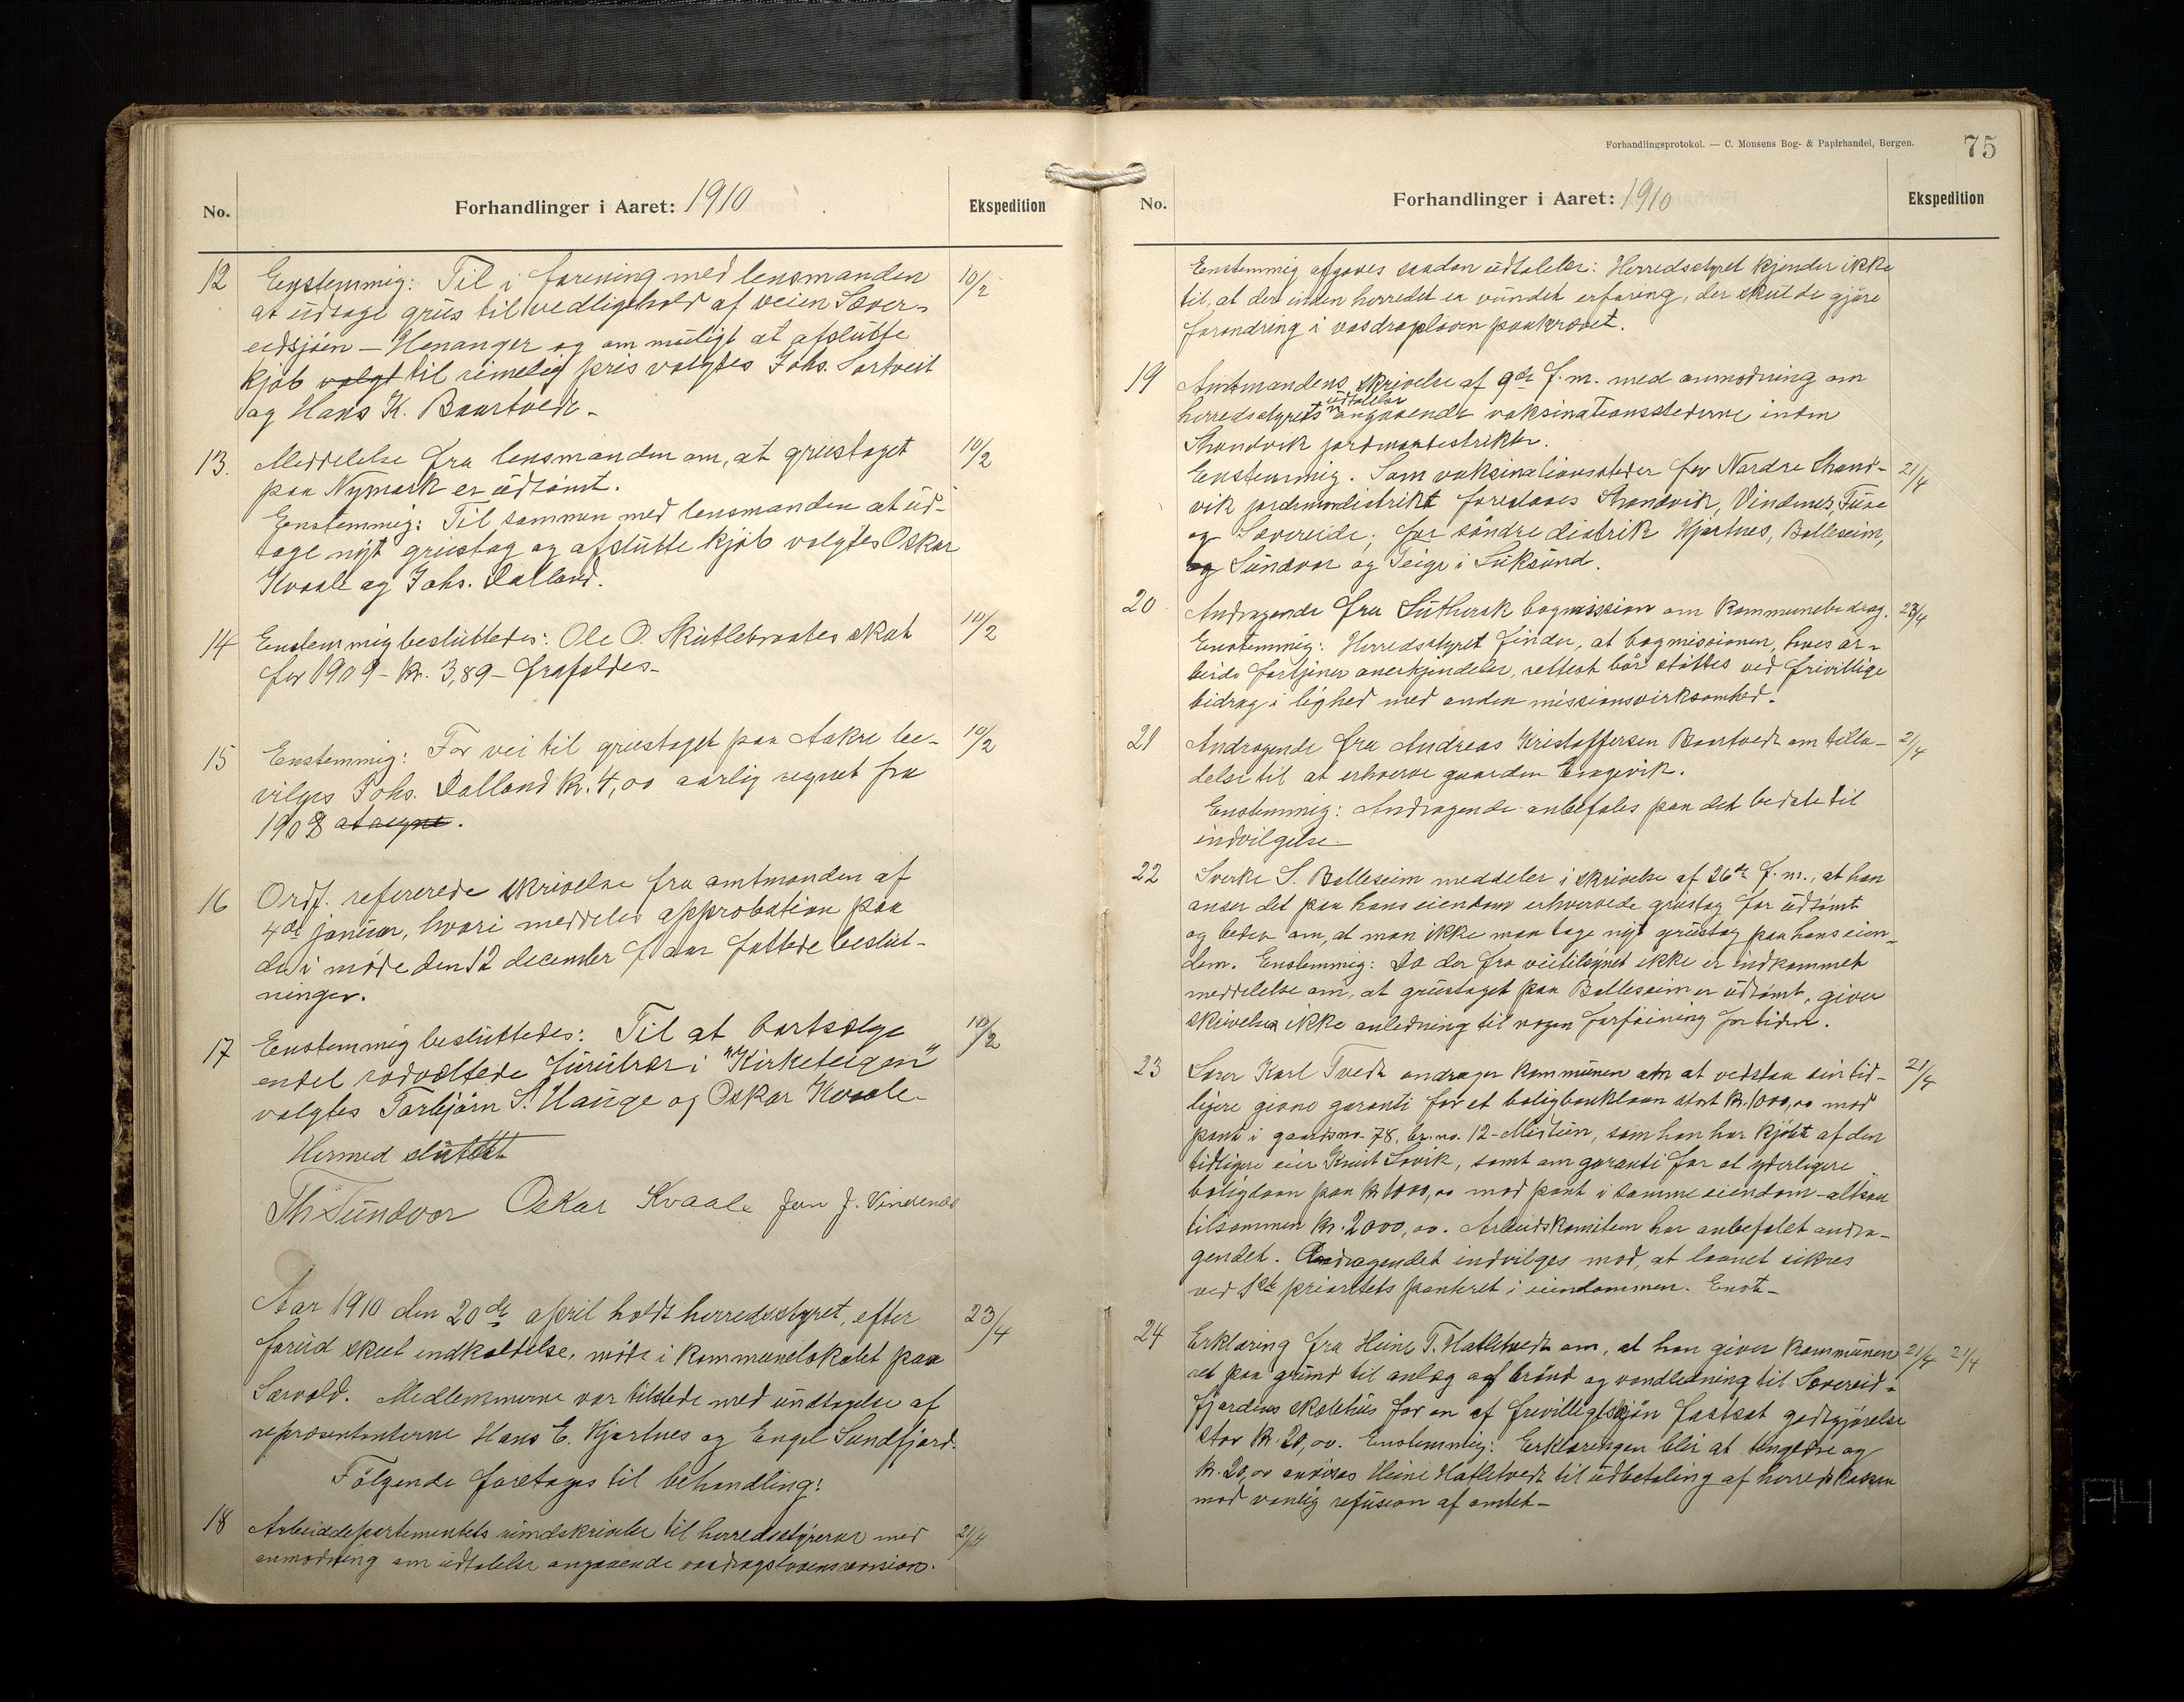 No.
Forhandlinger i Aaret: 1910
Ekspedition
12 Enstemmig: Til i forening med lensmanden 10/2
at udsøge grus til vedligehold af veien Sæver-
eidsjøen – Henanger og om muligt at afslutte
kjøb valgt til rimelig pris valgtes Johs. Sortveit
og Hans K. Baartvedt.
13. Meddelelse fra lensmanden om, at grustaget 10/2
paa Nymark er udtømt.
Enstemmig: Til sammen med lensmanden at ud-
tage nyt grustag og afslutte kjøb valgtes Oskar
Kvaale og Johs. Dalland.
14 Enstemmig besluttedes: Ole O. Skutlebraates skat 10/2
for 1909 – kr. 3,89 – frafaldes –
15 Enstemmig: For vei til grustaget paa Aakre be- 10/2
vilges Johs. Dalland kr. 4,00 aarlig regnet fra
1908 at regne.
16 Ordf. refererede skrivelse fra amtmanden af
4de januar, hvori meddeles approbation paa
de i møde den 12 december f. aar fattede beslut-
ninger.
17 Enstemmig besluttedes: Til at bortsælge 10/2
endel rodvæltede furutrær i "Kirketeigen"
valgtes Torbjørn S. Hauge og Oskar Kvaale –
Hermed sluttet
Th Sundvor Oskar Kvaale Jon J. Vindenes
Aar 1910 den 20de april holdt herredsstyret, efter 23/4
forud skeet indkaldelse, møde i kommunelokalet paa
Særvold. Medlemmerne var tilstede med undtagelse af
repræsentanterne Hans E. Kjartnes og Engel Sundfjord.
Følgende foretages til behandling:
18 Arbeiddepartementets rundskrivelse til herredsstyrerne med 21/4
anmodning om udtalelse angaaende vasdragslovens revision.
Forhandlingsprotokol. — C. Monsens Bog- & Papirhandel, Bergen.
75
No.
Forhandlinger i Aaret: 1910
Ekspedition
Enstemmig afgaves saadan udtalelse: Herredsstyret kjender ikke
til, at der inden herredet er vundet erfaring, der skulde gjøre
forandring i vasdragsloven paakrævet.
19 Amtmandens skrivelse af 9de f. m. med anmodning om
udtalelse
herredsstyrets angaaende vaksinationsstederne inden
Strandvik jordmordistrikter.
Enstemmig. Som vaksinationssteder for Nordre Strand- 21/4
vik jordmordistrikt foreslaaes Strandvik, Vindenes, Tuse
og Sævereide; for søndre distrik Kjartnes, Bolleseim,
og Sundvor og Teige i Suksund.
20 Andragende fra Luthersk bogmission om kommunebidrag. 23/4
Enstemmig: Herredsstyret finder, at bogmissionen, hvis ar-
beide fortjener anerkjendelse, rettest bør støttes ved frivillige
bidrag i lighed med anden missionsvirksomhed.
21 Andragende fra Andreas Kristoffersen Baartvedt om tilla- 21/4
delse til at erhverve gaarden Engevik.
Enstemmig: Andragende anbefales paa det bedste til
indvilgelse
22 Sverke S. Bolleseim meddeler i skrivelse af 26de f. m., at han
anser det paa hans eiendom erhvervede grustag for udtømt
og beder om, at man ikke maa tage nyt grustag paa hans eien-
dom. Enstemmig: Da der fra veitilsynet ikke er indkommet
meddelelse om, at grustaget paa Bolleseim er udtømt, giver
skrivelsen ikke anledning til nogen forføining for tiden.
23 Lærer Karl Tvedt andrager kommunen om at vedstaa sin tid- 21/4
ligere givne garanti for et boligbanklaan stort kr. 1000,00 mod
pant i gaardsno. 78, br.no. 12 – Mistien, som han har kjøbt af den
tidligere eier Knut Søvik, samt om garanti for et yderligere
boliglaan paa kr 1000,00 mod pant i samme eiendom – altsaa
tilsammen kr. 2000,00. Arbeidskomiteen har anbefalet andra-
gendet. Andragendet indvilges mod, at laanet sikres
ved 1ste prioritets panteret i eiendommen. Enst –
24 Erklæring fra Heine T. Hatletvedt om, at han giver kommunen 21/4 21/4
ret paa grund til anlæg af brønd og vandledning til Sævereid-
fjordens skolehus for en af frivilligt skjøn fastsat godtgjørelse
stor kr. 20,00. Enstemmig: Erklæringen blir at tinglyse og
kr. 20,00 anvises Heine Hatletvedt til udbetaling af herredskassen
mod vanlig refusion af amtet –